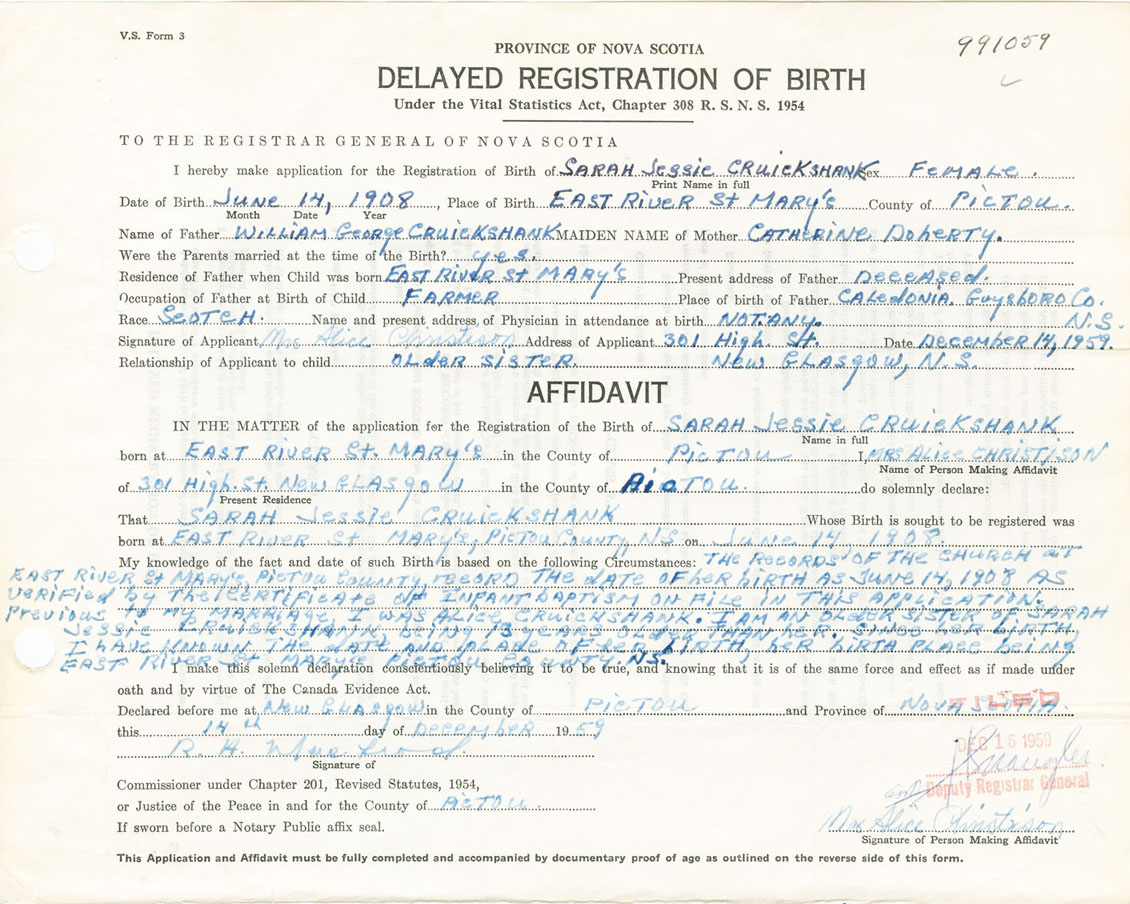 V.S. Form 3
991059
PROVINCE OF NOVA SCOTIA
DELAYED REGISTRATION OF BIRTH
Under the Vital Statistics Act, Chapter 308 R. S. N. S. 1954
TO THE REGISTRAR GENERAL OF NOVA SCOTIA
I hereby make application for the Registration of Birth of SARAH Jessie CRUICKSHANK Sex FEMALE.
Print Name in full
Date of Birth June 14, 1908, Place of Birth EAST RIVER St MARY'S County of PICTOU.
Month Date Year
Name of Father WILLIAM George CRUICKSHANK MAIDEN NAME of Mother CATHERINE Doherty.
Were the Parents married at the time of the Birth? yes.
Residence of Father when Child was born EAST RIVER St MARY'S Present address of Father Deceased.
Occupation of Father at Birth of Child FARMER Place of birth of Father CALEDONIA, Guysboro Co.
Race SCOTCH. Name and present address of Physician in attendance at birth NOT ANY. N.S.
Signature of Applicant Mrs Alice Christison Address of Applicant 301 High St. Date December 14, 1959.
Relationship of Applicant to child OLDER SISTER. New GLASgow, N.S.
AFFIDAVIT
IN THE MATTER of the application for the Registration of the Birth of SARAH Jessie CRUICKSHANK
Name in full
born at EAST RIVER St. MARY'S in the County of PICTOU I, MRS ALICE CHRISTISON
Name of Person Making Affidavit
of 301 High St. New GLASgow in the County of PICTOU. do solemnly declare:
Present Residence
That SARAH Jessie CRUICKSHANK Whose Birth is sought to be registered was
born at EAST RIVER St MARY'S, PICTOU COUNTY, N.S. on June 14 1908.
My knowledge of the fact and date of such Birth is based on the following Circumstances: THE RECORDS OF THE CHURCH AT
EAST RIVER St MARY'S, PICTOU COUNTY, RECORD THE DATE OF her BIRTH AS JUNE 14, 1908 AS
verified by THE CERTIFICATE OF INFANT BAPTISM ON FILE IN THIS APPLICATION.
Previous to MY MARRIAGE I WAS ALICE CRUICKSHANK. I AM AN OLDER SISTER OF SARAH
Jessie CRUICKSHANK being 13 YEARS OLDER THAN her. SINCE her BIRTH
I have KNOWN THE DATE AND PLACE OF her BIRTH, her BIRTH PLACE being
EAST RIVER St MARY'S PICTOU COUNTY NS.
I make this solemn declaration conscientiously believing it to be true, and knowing that it is of the same force and effect as if made under
oath and by virtue of The Canada Evidence Act.
Declared before me at New GLASgow in the County of PICTOU and Province of NOVA SCOTIA.
FILED
this 14th day of December 1959
DEC 15 1959
R. H.
Signature of
Commissioner under Chapter 201, Revised Statutes, 1954,
Deputy Registrar General
or Justice of the Peace in and for the County of PICTOU.
Mrs Alice Christison
If sworn before a Notary Public affix seal.
Signature of Person Making Affidavit
This Application and Affidavit must be fully completed and accompanied by documentary proof of age as outlined on the reverse side of this form.